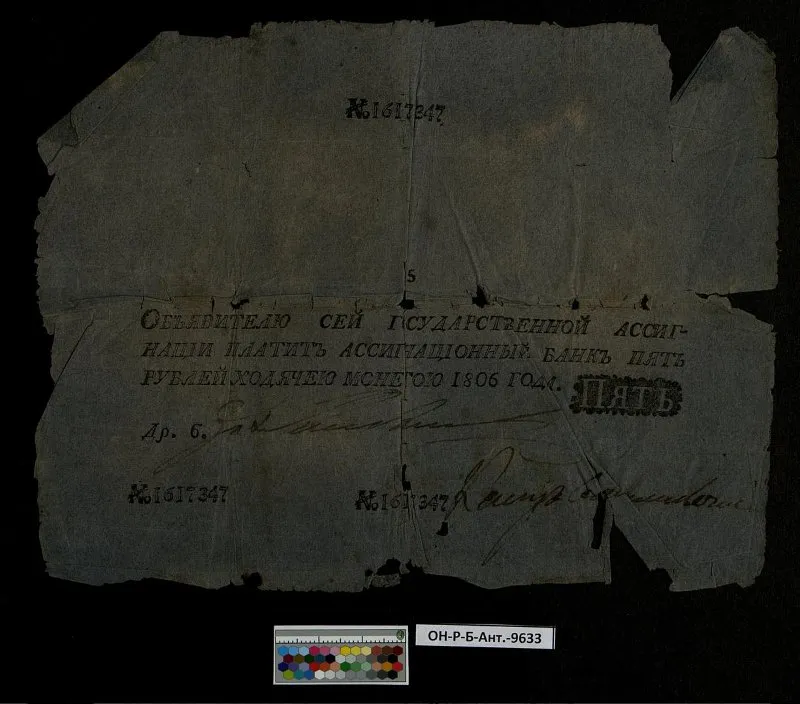 №1617347
5
Объявителю сей государственной ассиг-
нации платитъ ассигнаціонный банкъ пять
рублей ходячею монетою 1806 года.
ПЯТЬ
Др. б.
№1617347 №1617347
ОН-Р-Б-Ант.-9633